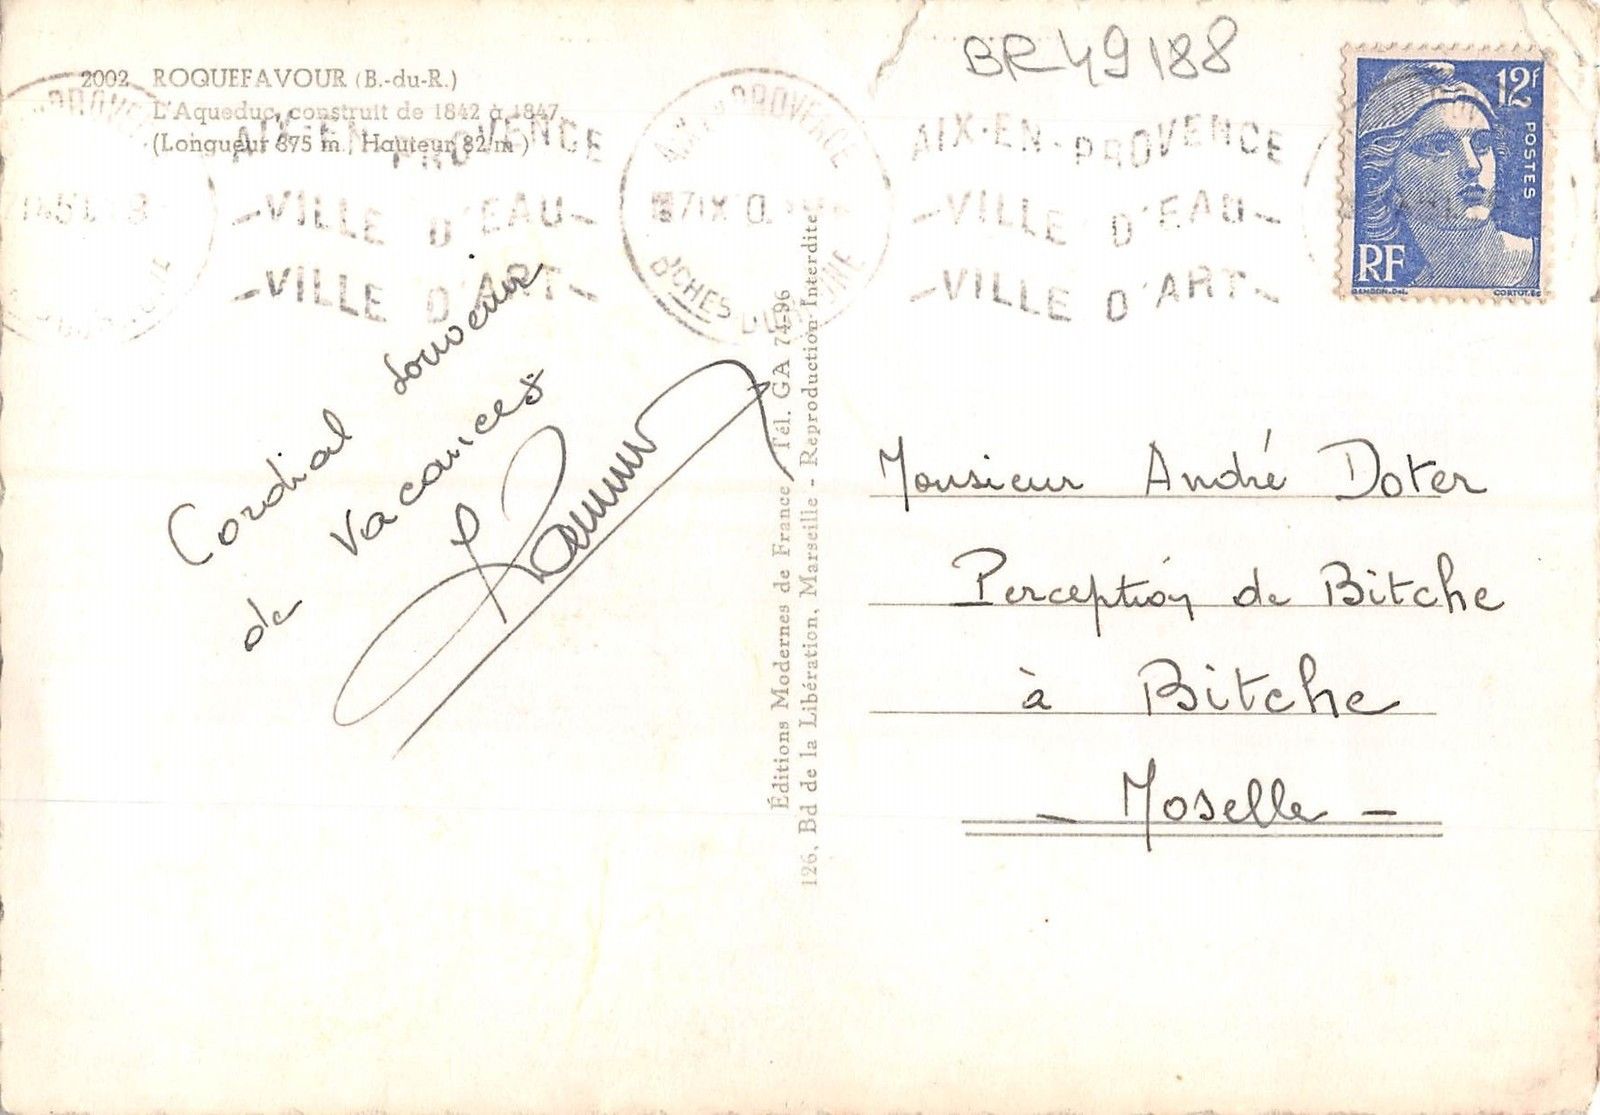 BR 49188
2002 ROQUEFAVOUR (B.-du-R.)
L'Aqueduc, construit de 1842 à 1847
(Longueur 375 m. Hauteur 82 m)
AIX-EN-PROVENCE
-VILLE D'EAU-
-VILLE D'ART-
AIX-EN-PROVENCE
-VILLE D'EAU-
-VILLE D'ART-
PROVENCE
BCHES DU RHONE
12F
POSTES
RF
GANDON.DEL.
CORTOT.SC
Cordial souvenir
de vacances
Éditions Modernes de France Tél. GA 74-96
126, Bd de la Libération, Marseille - Reproduction Interdite
Monsieur André Doter
Perception de Bitche
à Bitche
- Moselle -